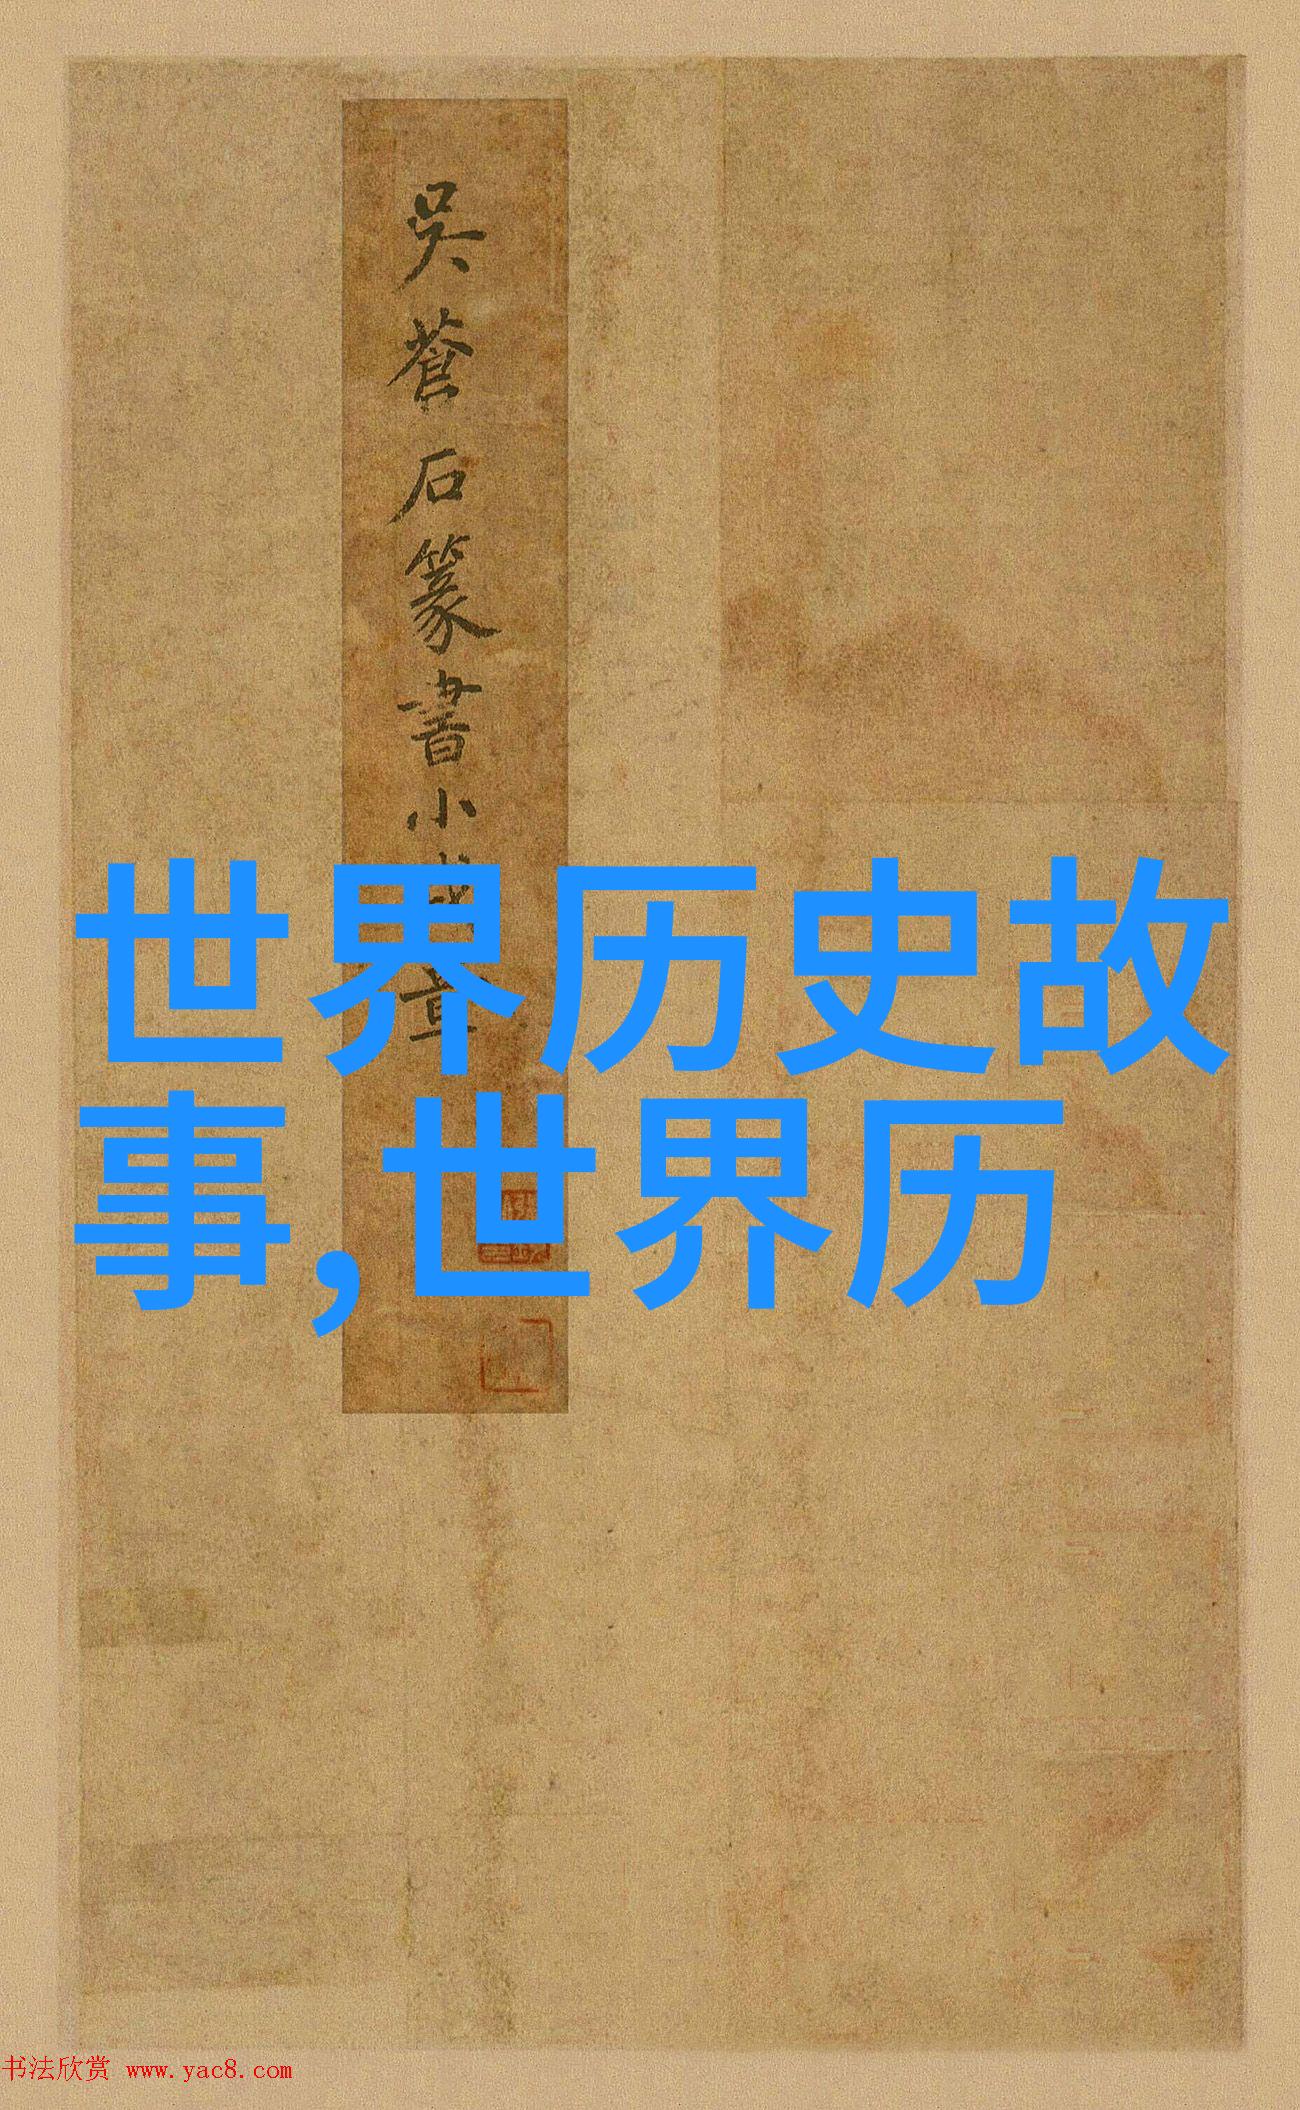 吳蒼石篆書小
世界历史故
事,世界历
书法欣赏 www.yac8.com